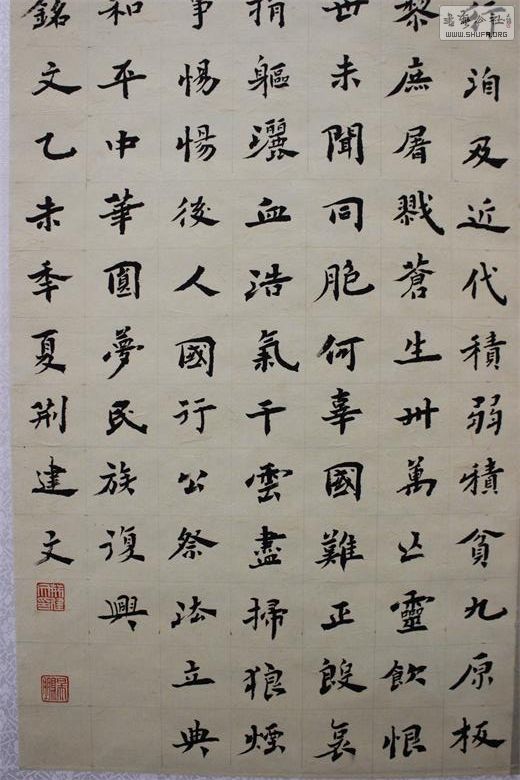 行洎及近代積弱積貧九原板
黎庶屠戮蒼生卅萬亡靈飲恨
世未聞同胞何辜國難正殷哀
捐軀灑血浩氣干雲盡掃狼煙
事惕惕後人國行公祭法立典
和平中華圓夢民族復興
銘文乙未季夏荆建文
WWW.SHUFA.ORG